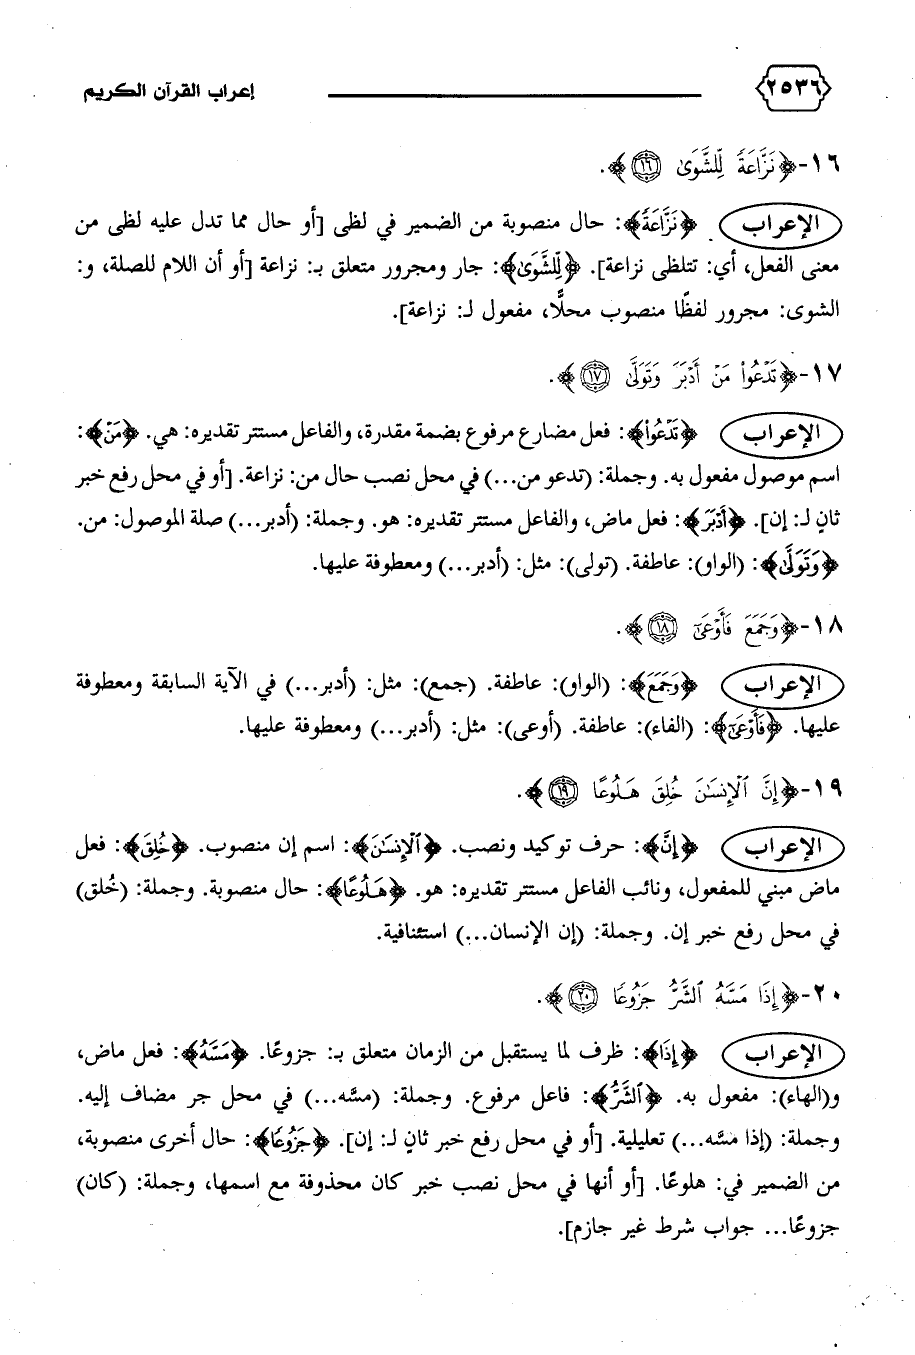 ٢٥٣٦ إعراب القرآن الكريم
١٦-﴿نَزَّاعَةً لِّلشَّوَىٰ ١٦﴾.
الإعراب ﴿نَزَّاعَةً﴾: حال منصوبة من الضمير في لظى [أو حال مما تدل عليه لظى من
معنى الفعل، أي: تتلظى نزاعة]. ﴿لِّلشَّوَىٰ﴾: جار ومجرور متعلق بـ: نزاعة [أو أن اللام للصلة، و:
الشوى: مجرور لفظًا منصوب محلًّا، مفعول لـ: نزاعة].
١٧-﴿تَدْعُوا۟ مَنْ أَدْبَرَ وَتَوَلَّىٰ ١٧﴾.
الإعراب ﴿تَدْعُوا۟﴾: فعل مضارع مرفوع بضمة مقدرة، والفاعل مستتر تقديره: هي. ﴿مَنْ﴾:
اسم موصول مفعول به. وجملة: (تدعو من...) في محل نصب حال من: نزاعة. [أو في محل رفع خبر
ثانٍ لـ: إن]. ﴿أَدْبَرَ﴾: فعل ماض، والفاعل مستتر تقديره: هو. وجملة: (أدبر...) صلة الموصول: من.
﴿وَتَوَلَّىٰ﴾: (الواو): عاطفة. (تولى): مثل: (أدبر...) ومعطوفة عليها.
١٨-﴿وَجَمَعَ فَأَوْعَىٰٓ ١٨﴾.
الإعراب ﴿وَجَمَعَ﴾: (الواو): عاطفة. (جمع): مثل: (أدبر...) في الآية السابقة ومعطوفة
عليها. ﴿فَأَوْعَىٰٓ﴾: (الفاء): عاطفة. (أوعى): مثل: (أدبر...) ومعطوفة عليها.
١٩-﴿إِنَّ ٱلْإِنسَٰنَ خُلِقَ هَلُوعًا ١٩﴾.
الإعراب ﴿إِنَّ﴾: حرف توكيد ونصب. ﴿ٱلْإِنسَٰنَ﴾: اسم إن منصوب. ﴿خُلِقَ﴾: فعل
ماض مبني للمفعول، ونائب الفاعل مستتر تقديره: هو. ﴿هَلُوعًا﴾: حال منصوبة. وجملة: (خُلق)
في محل رفع خبر إن. وجملة: (إن الإنسان...) استئنافية.
٢٠-﴿إِذَا مَسَّهُ ٱلشَّرُّ جَزُوعًا ٢٠﴾.
الإعراب ﴿إِذَا﴾: ظرف لما يستقبل من الزمان متعلق بـ: جزوعًا. ﴿مَسَّهُ﴾: فعل ماض،
و(الهاء): مفعول به. ﴿ٱلشَّرُّ﴾: فاعل مرفوع. وجملة: (مسَّه...) في محل جر مضاف إليه.
وجملة: (إذا مسَّه...) تعليلية. [أو في محل رفع خبر ثانٍ لـ: إن]. ﴿جَزُوعًا﴾: حال أخرى منصوبة،
من الضمير في: هلوعًا. [أو أنها في محل نصب خبر كان محذوفة مع اسمها، وجملة: (كان)
جزوعًا... جواب شرط غير جازم].